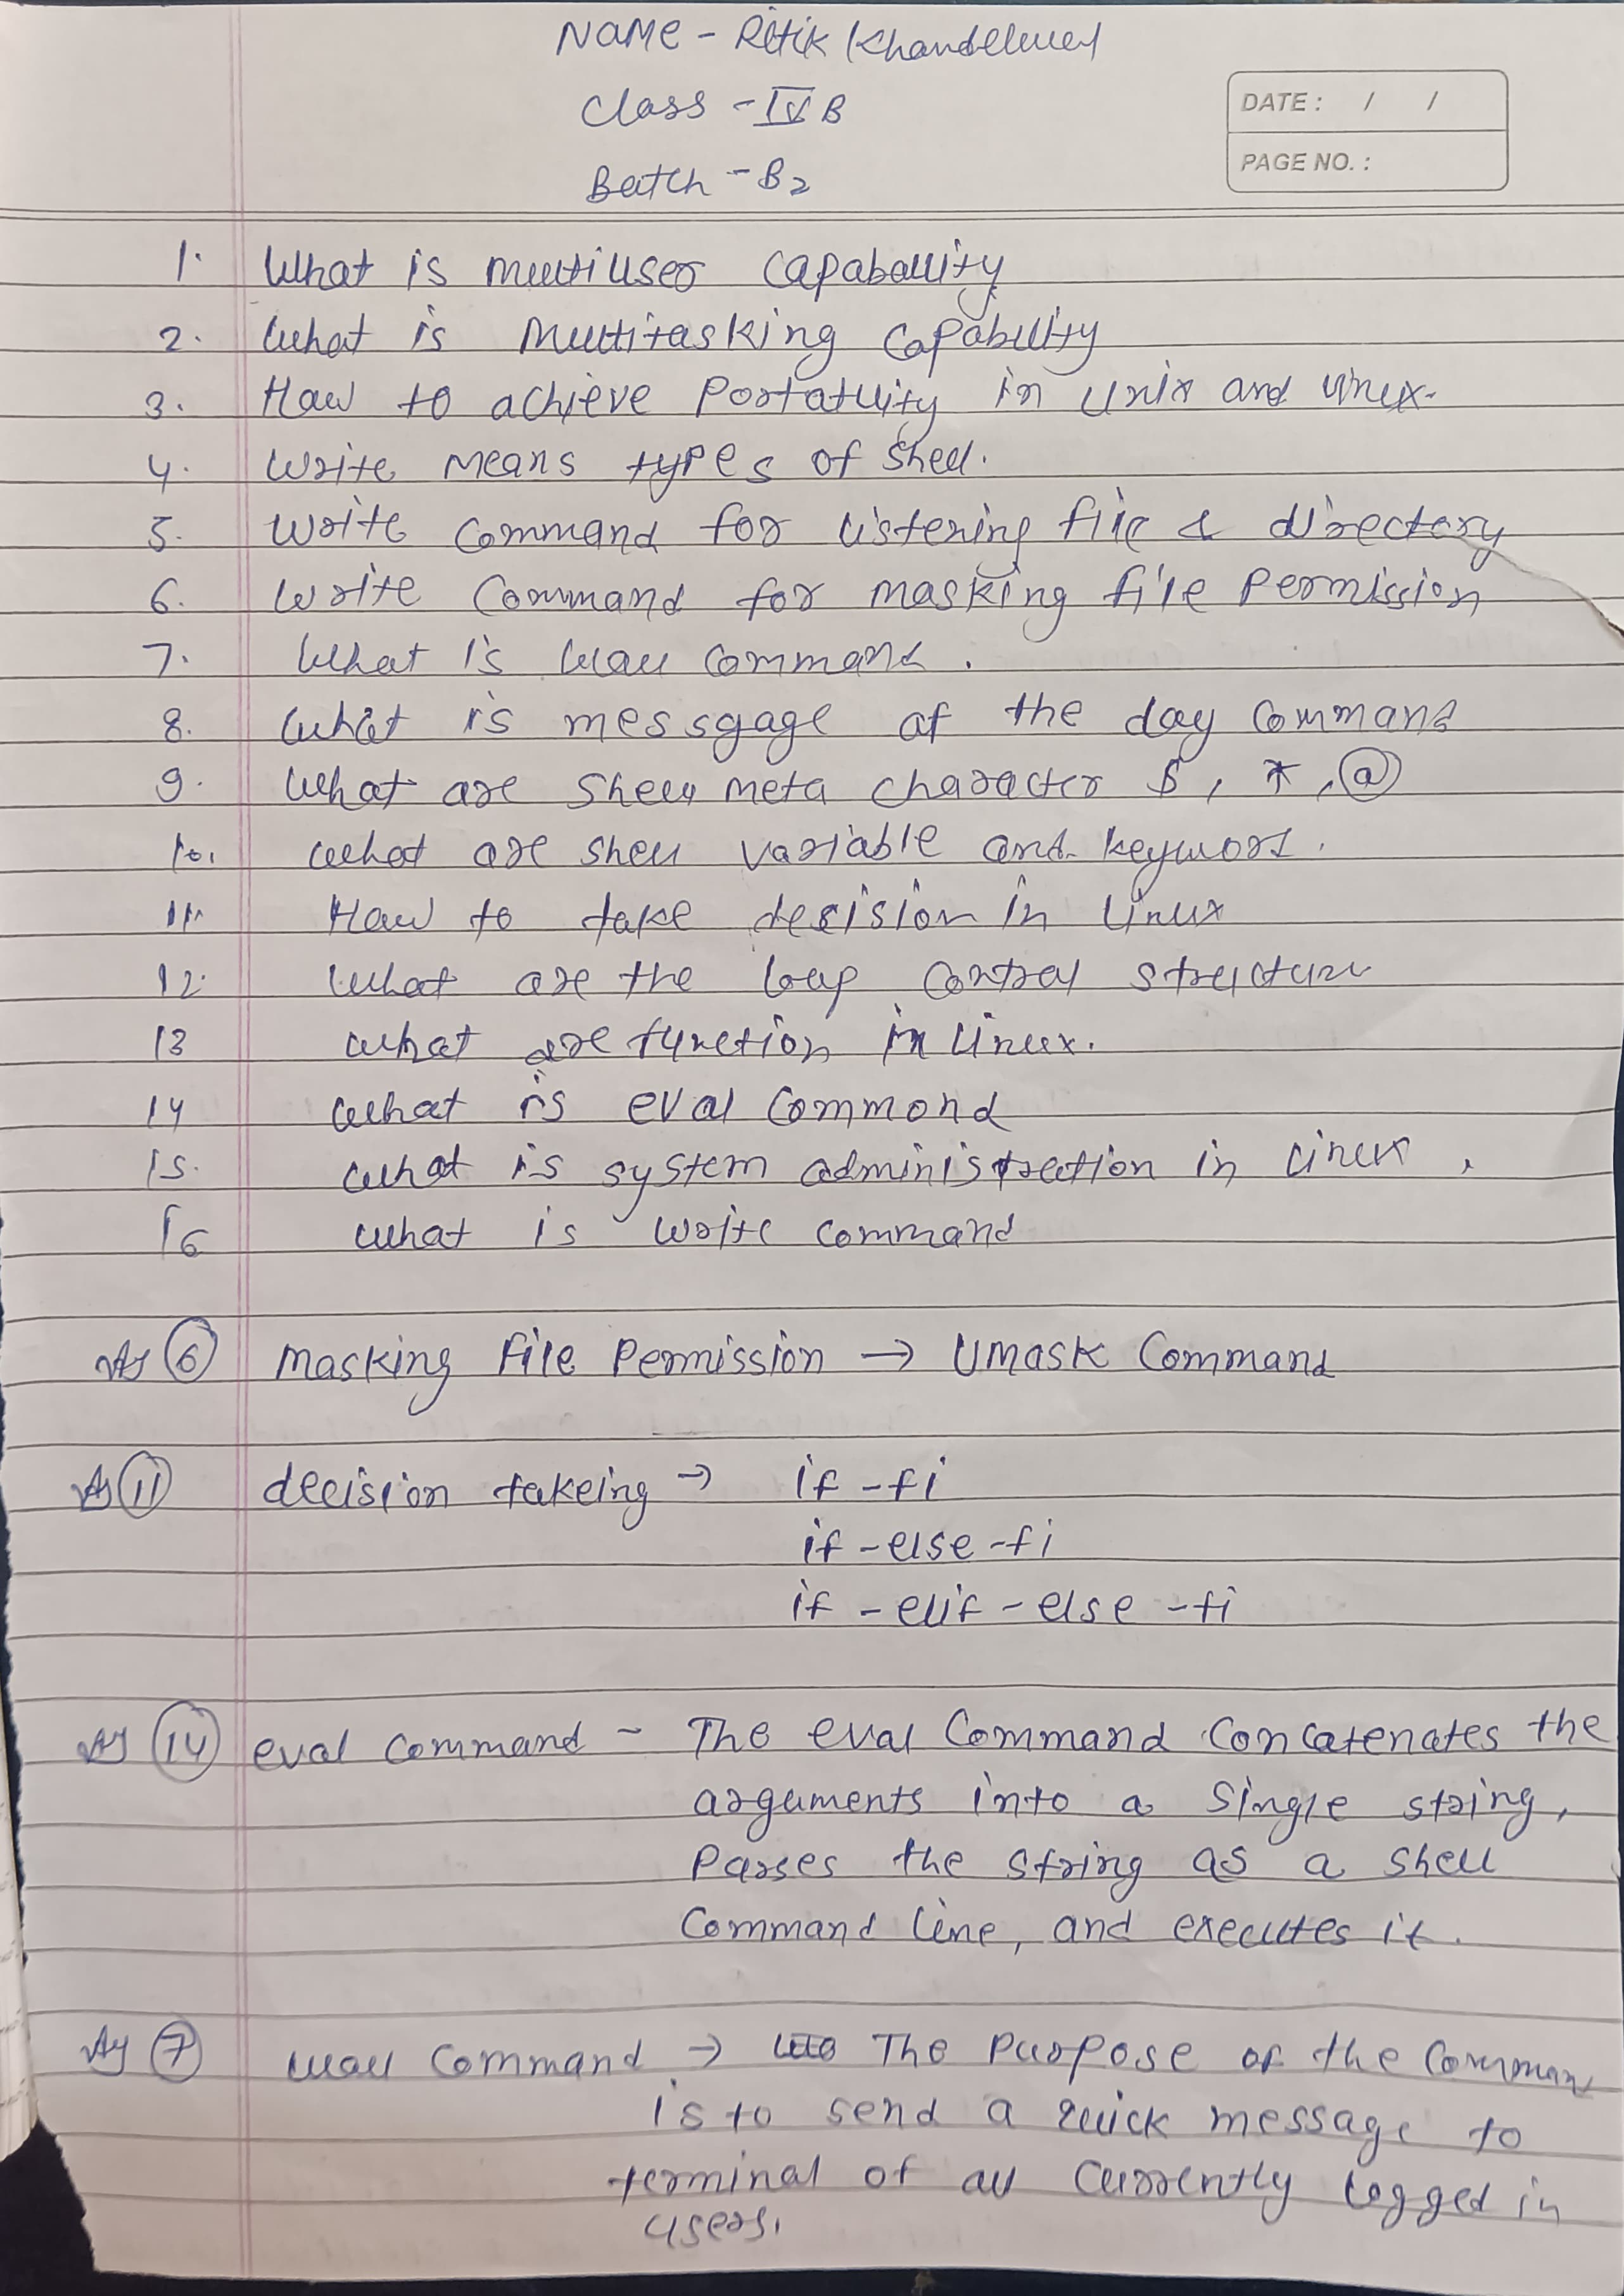 NAME - Ritik Khandelwal
Class - IV B
DATE : / /
PAGE NO. :
Batch - B2
1. What is multiuser capabality
2. What is Multitasking Capability
3. How to achieve Portability in Unix and Linux.
4. Write means types of shell.
5. Write command for listening file & directory
6. Write Command for masking file Permission
7. What is wall command.
8. What is messgage of the day command
9. What are Shell meta character $, *, @
10. What are shell variable and keyword.
11. How to take decision in Linux
12. What are the loop control structure
13 What are function in Linux.
14 What is eval Commond
15. What is system administration in Linux,
16 What is write command
Ans 6 Masking File Permission → Umask Command
Ans 11 decision takeing → if - fi
if - else - fi
if - elif - else - fi
Ans 14 eval command - The eval Command Concatenates the
arguments into a single string,
Parses the string as a shell
Command line, and executes it.
Ans 7 wall Command → The Purpose of the Comman
is to send a quick message to
terminal of all Currently logged in
users.